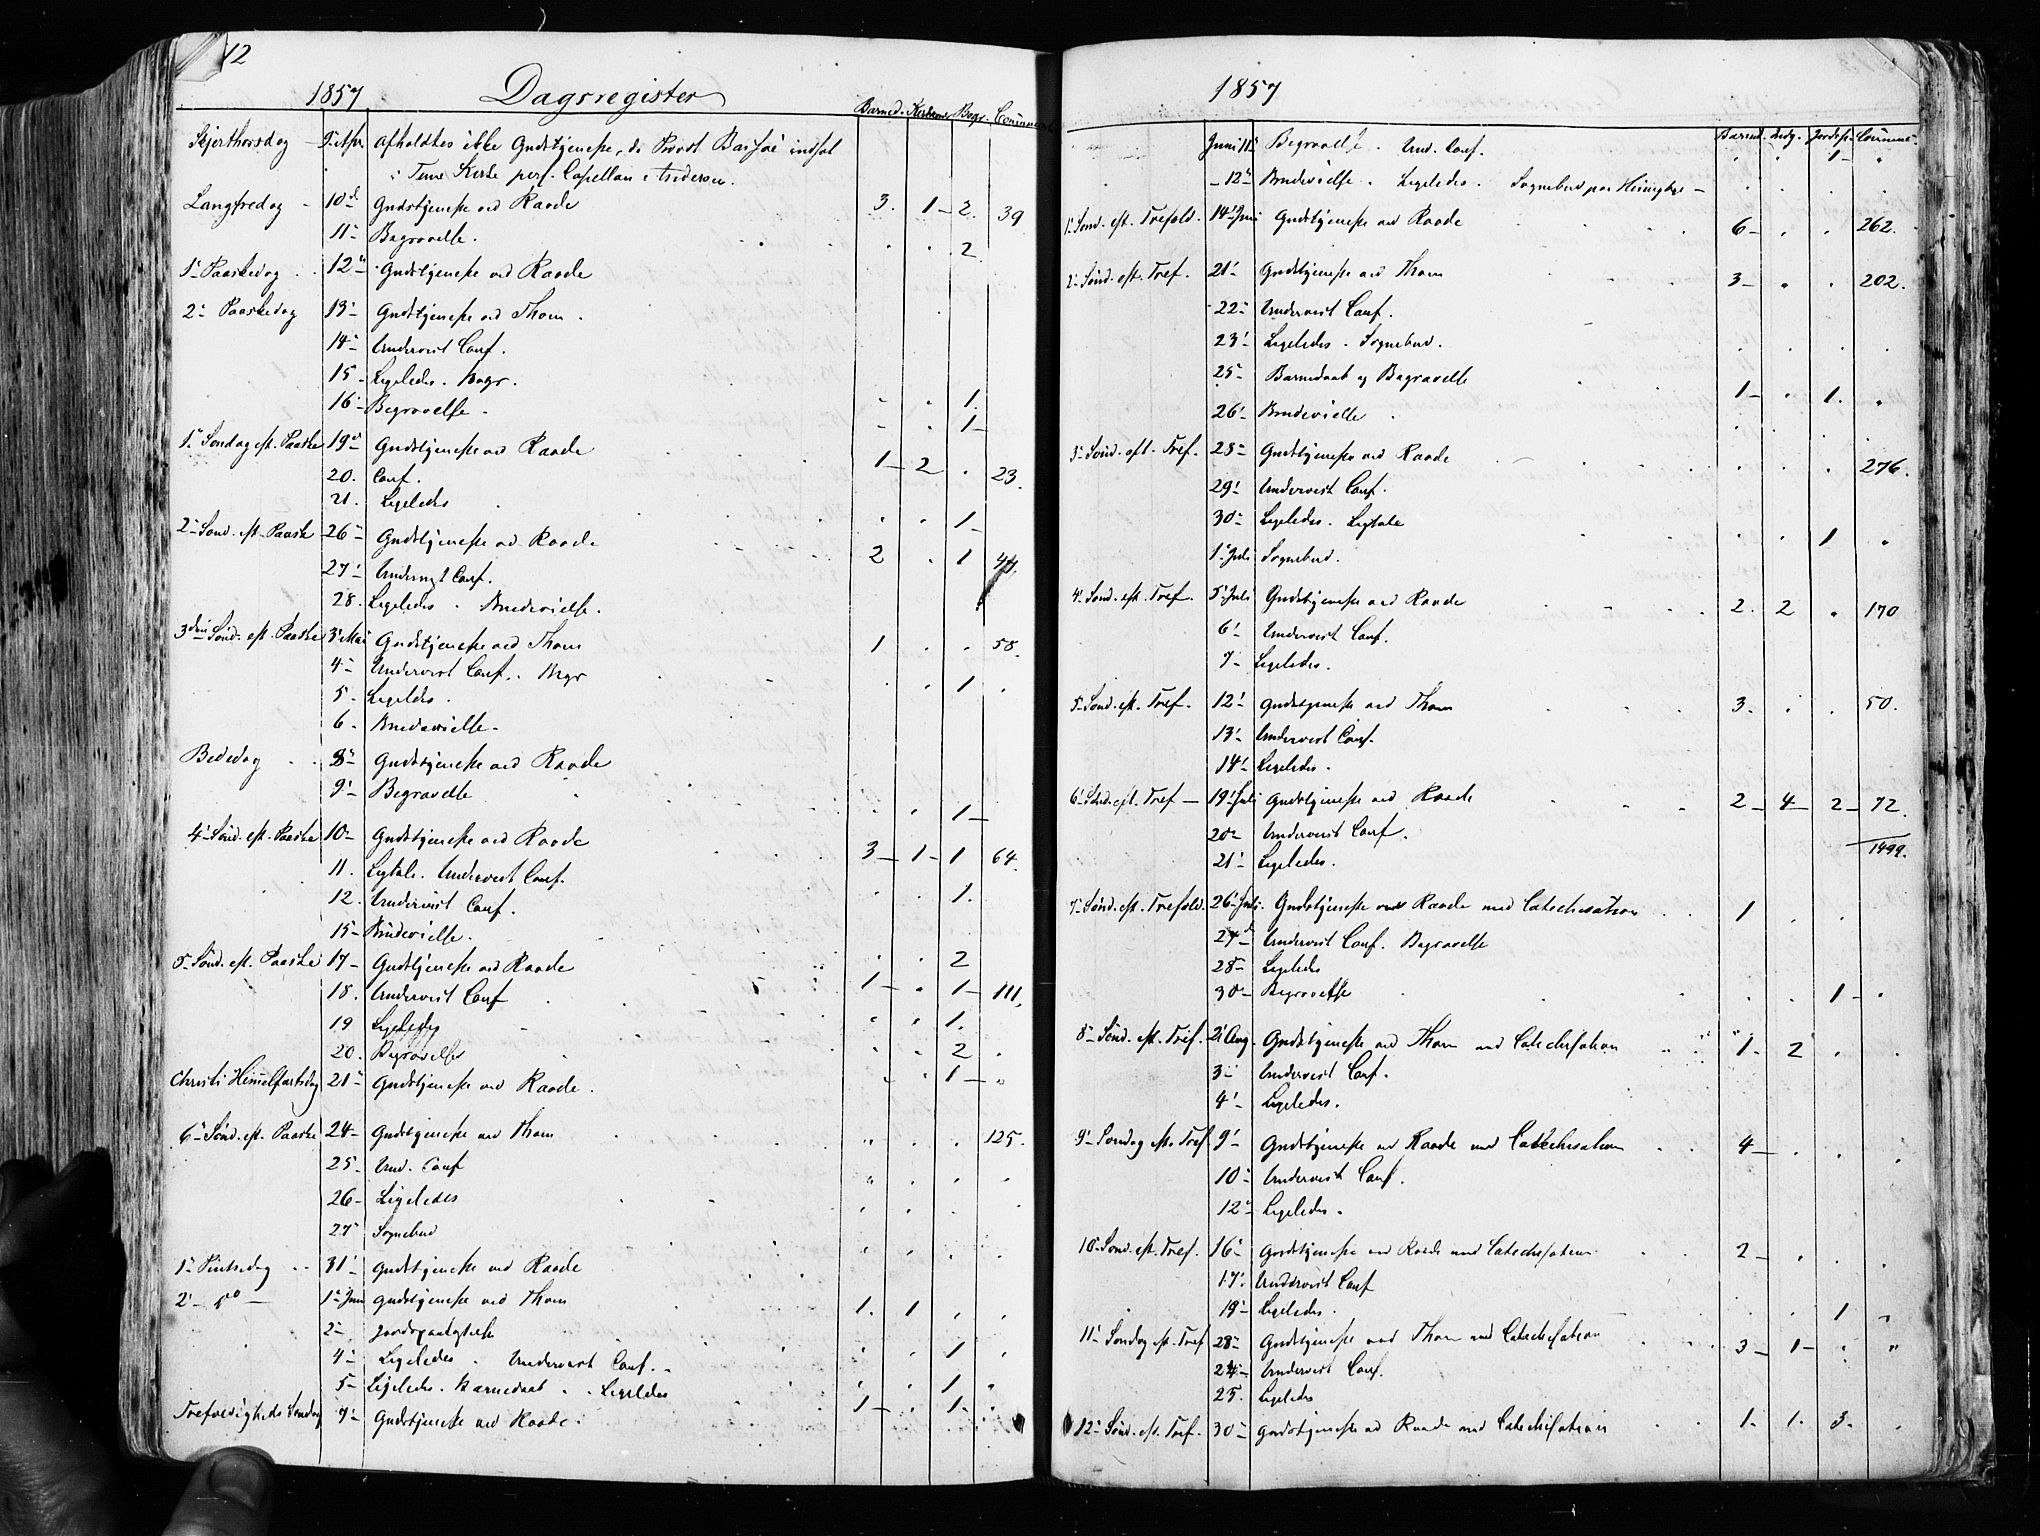 12
1857 Dagsregister
Barned. Begr. Commun
Skjerthorsdag 9 Apr. afholdtes ikke Gudstjeneste, da Provst indsat
i Tune Kirke pers. Capellan
Langfredag 10 Gudstjeneste ved Raade 3. 1 2. 39
11 Begravelse. 2
1 Paaskedag 12 Gudstjeneste ved Raade
2 Paaskedag 13 Gudstjeneste ved Thom.
14 Undervist Conf.
15 Ligeledes. Begr. 1.
16 Begravelse. 1
1 Søndag eft. Paaske 19 Gudstjeneste ved Raade 1 2 . 23.
20. Conf.
21. Ligeledes 1
2 Sønd. eft. Paaske 26 Gudstjeneste ved Raade 2 . 1 44.
27 Undervist Conf.
28. Ligeledes. Brudevielse.
3die Sønd. eft. Paaske 3 Mai Gudstjeneste ved Thom 1 . . 58.
4 Undervist Conf. Begr 1
5 Ligeledes.
6. Brudevielse.
Bededag 8 Gudstjeneste ved Raade
9 Begravelse 1
4 Sønd. eft. Paaske 10 Gudstjeneste ved Raade 3 1 1 64.
11. Ligtale. Undervist Conf. 1.
12. Undervist Conf.
15 Brudevielse. 2
5 Sønd. eft. Paaske 17 Gudstjeneste ved Raade 1 . 1 111.
18. Undervist Conf 1.
19 Ligeledes 2
20. Begravelse 1
Christi Himmelfartsdag 21 Gudstjeneste ved Raade.
6 Sønd. eft. Paaske 24 Gudstjeneste ved Thom . . . 125.
25 Und. Conf
26 Ligeledes
27 Sognebud
1 Pintsedag 31 Gudstjeneste ved Raade
2 do 1 Juni Gudstjeneste ved Thom 1. 1 . .
2 Jordspaakastelse 1
4 Ligeledes. Undervist Conf. 1
5 Ligeledes. Barnedaab. Ligeledes 1 . 1.
Trefoldigheds Søndag 7 Gudstjeneste ved Raade.
1857
Barned. Jordsp. Commun
Juni 11 Begravelse. Und. Conf. 1
12 Brudevielse. Ligeledes. Sognebud
1 Sønd. eft. Trefold. 14 Juni Gudstjeneste ved Raade 6 . . 262.
2 Sønd. eft. Tref. 21 Gudstjeneste ved Thom 3 . . 202.
22 Undervist Conf.
23 Ligeledes. Sognebud.
25 Barnedaab og Begravelse 1 . 1.
26 Brudevielse
3 Sønd. eft. Tref. 28 Gudstjeneste ved Raade . . . 276.
29 Undervist Conf.
30 Ligeledes. Ligtale 1
1 Juli Sognebud.
4 Sønd. eft. Tref. 5 Juli Gudstjeneste ved Raade 2. 2 . 170
6 Undervist Conf.
7 Ligeledes.
5 Sønd. eft. Tref. 12 Gudstjeneste ved Thom 3. . . 50.
13 Undervist Conf.
14 Ligeledes.
6 Sønd. eft. Tref 19 Juli Gudstjeneste ved Raade 2 4 2 72.
20 Undervist Conf. 1499.
21 Ligeledes.
7 Sønd. eft. Trefold. 26 Juli. Gudstjeneste ved Raade med Catechisation 1
27 Undervist Conf. Begravelse
28 Ligeledes
30 Begravelse 1
8 Sønd. eft. Tref. 2 Aug. Gudstjeneste ved Thom med Catechisation 1. 2
3 Undervist Conf.
4 Ligeledes.
9 Søndag eft. Tref 9 Gudstjeneste ved Raade med Catechisation 4
10 Undervist Conf.
12 Ligeledes.
10 Sønd. eft. Tref. 16 Gudstjeneste ved Raade med Catechisation 2
17. Undervist Conf
19 Ligeledes. 1
11 Søndag eft. Tref 23 Gudstjeneste ved Thom med Catechisation 3 1
24 Undervist Conf.
25. Ligeledes
12 Sønd. eft. Tref. 30 Gudstjeneste ved Raade med Catechisation 1. 1. 3.